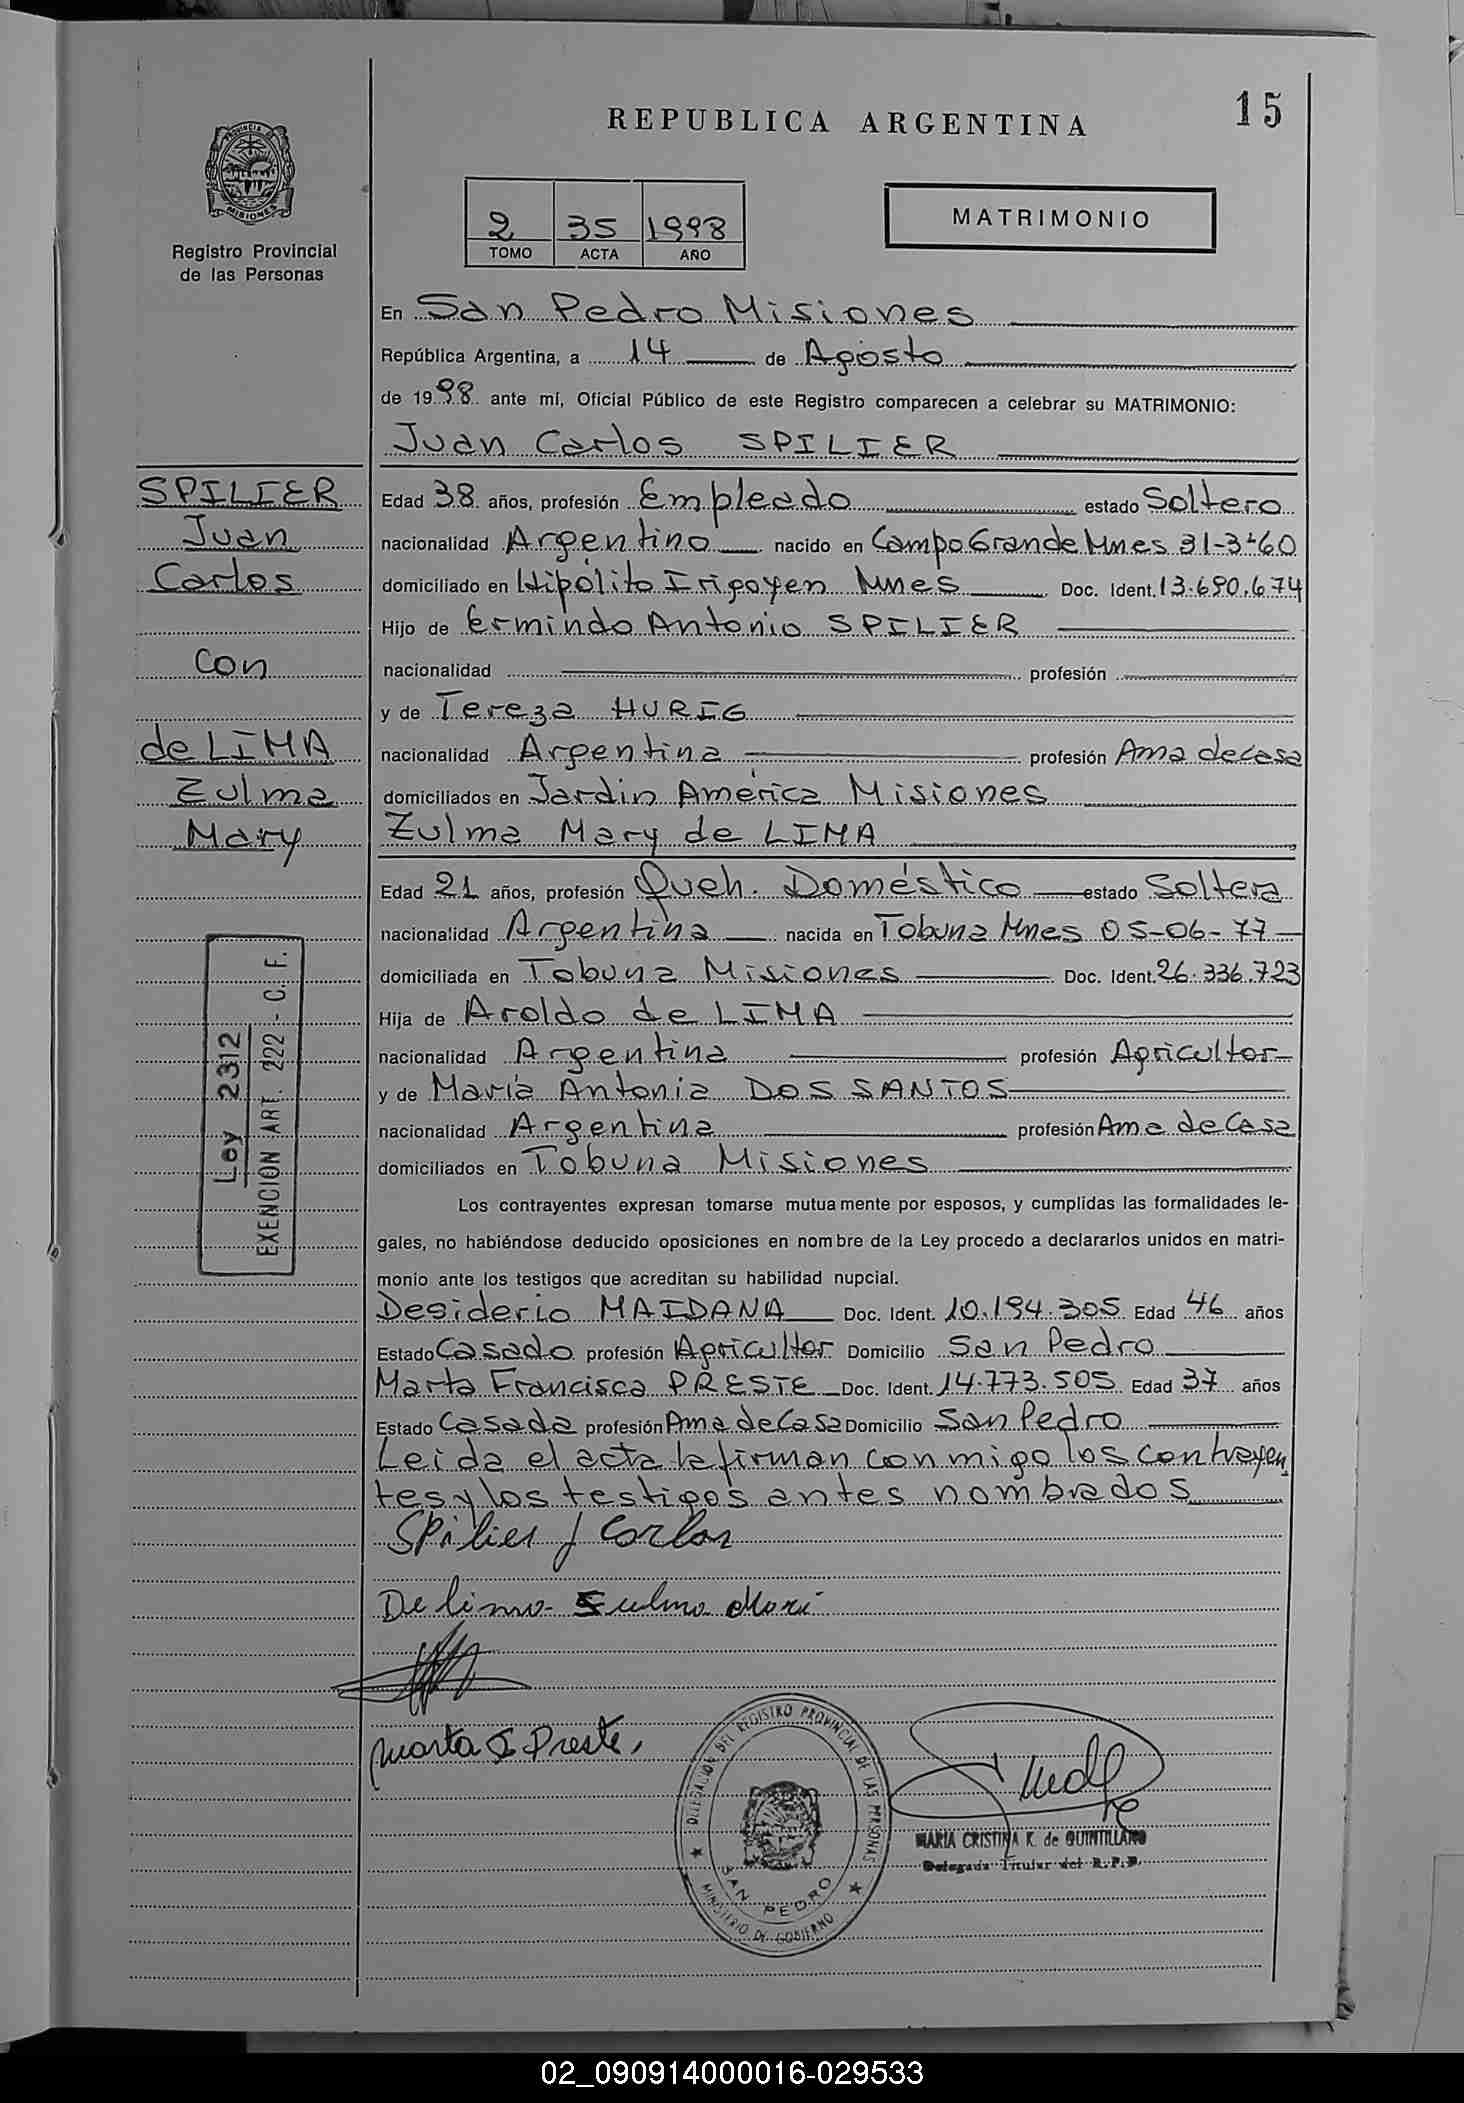 15
REPUBLICA ARGENTINA
PROVINCIA DE
MISIONES
Registro Provincial
de las Personas
2 35 1998
TOMO ACTA AÑO
MATRIMONIO
En San Pedro Misiones
República Argentina, a 14 de Agosto
de 1998 ante mí, Oficial Público de este Registro comparecen a celebrar su MATRIMONIO:
Juan Carlos SPILIER
SPILIER
Juan
Carlos
con
de LIMA
Zulma
Mary
Edad 38 años, profesión Empleado estado Soltero
nacionalidad Argentino nacido en Campo Grande Mnes 31-3-60
domiciliado en Hipólito Irigoyen Mnes Doc. Ident. 13.690.674
Hijo de Ermindo Antonio SPILIER
nacionalidad profesión
y de Tereza HURIG
nacionalidad Argentina profesión Ama de casa
domiciliados en Jardin América Misiones
Zulma Mary de LIMA
Edad 21 años, profesión Queh. Doméstico estado Soltera
nacionalidad Argentina nacida en Tobuna Mnes 05-06-77
domiciliada en Tobuna Misiones Doc. Ident. 26.336.723
Hija de Aroldo de LIMA
nacionalidad Argentina profesión Agricultor
y de María Antonia DOS SANTOS
nacionalidad Argentina profesión Ama de Casa
domiciliados en Tobuna Misiones
Ley 2312
EXENCION ART. 222 - C. F.
Los contrayentes expresan tomarse mutuamente por esposos, y cumplidas las formalidades le-
gales, no habiéndose deducido oposiciones en nombre de la Ley procedo a declararlos unidos en matri-
monio ante los testigos que acreditan su habilidad nupcial.
Desiderio MAIDANA Doc. Ident. 10.194.305 Edad 46 años
Estado Casado profesión Agricultor Domicilio San Pedro
Marta Francisca PRESTE Doc. Ident. 14.773.505 Edad 37 años
Estado Casada profesión Ama de Casa Domicilio San Pedro
Leida el acta la firman conmigo los contrayen
tes y los testigos antes nombrados
Spilier J Carlos
De lima Sulma Mari
Marta F Preste,
DELEGACION DEL REGISTRO PROVINCIAL DE LAS PERSONAS
SAN PEDRO
MINISTERIO DE GOBIERNO
MARIA CRISTINA K. de QUINTILLANO
Delegada Titular del R.P.P.
02_090914000016-029533